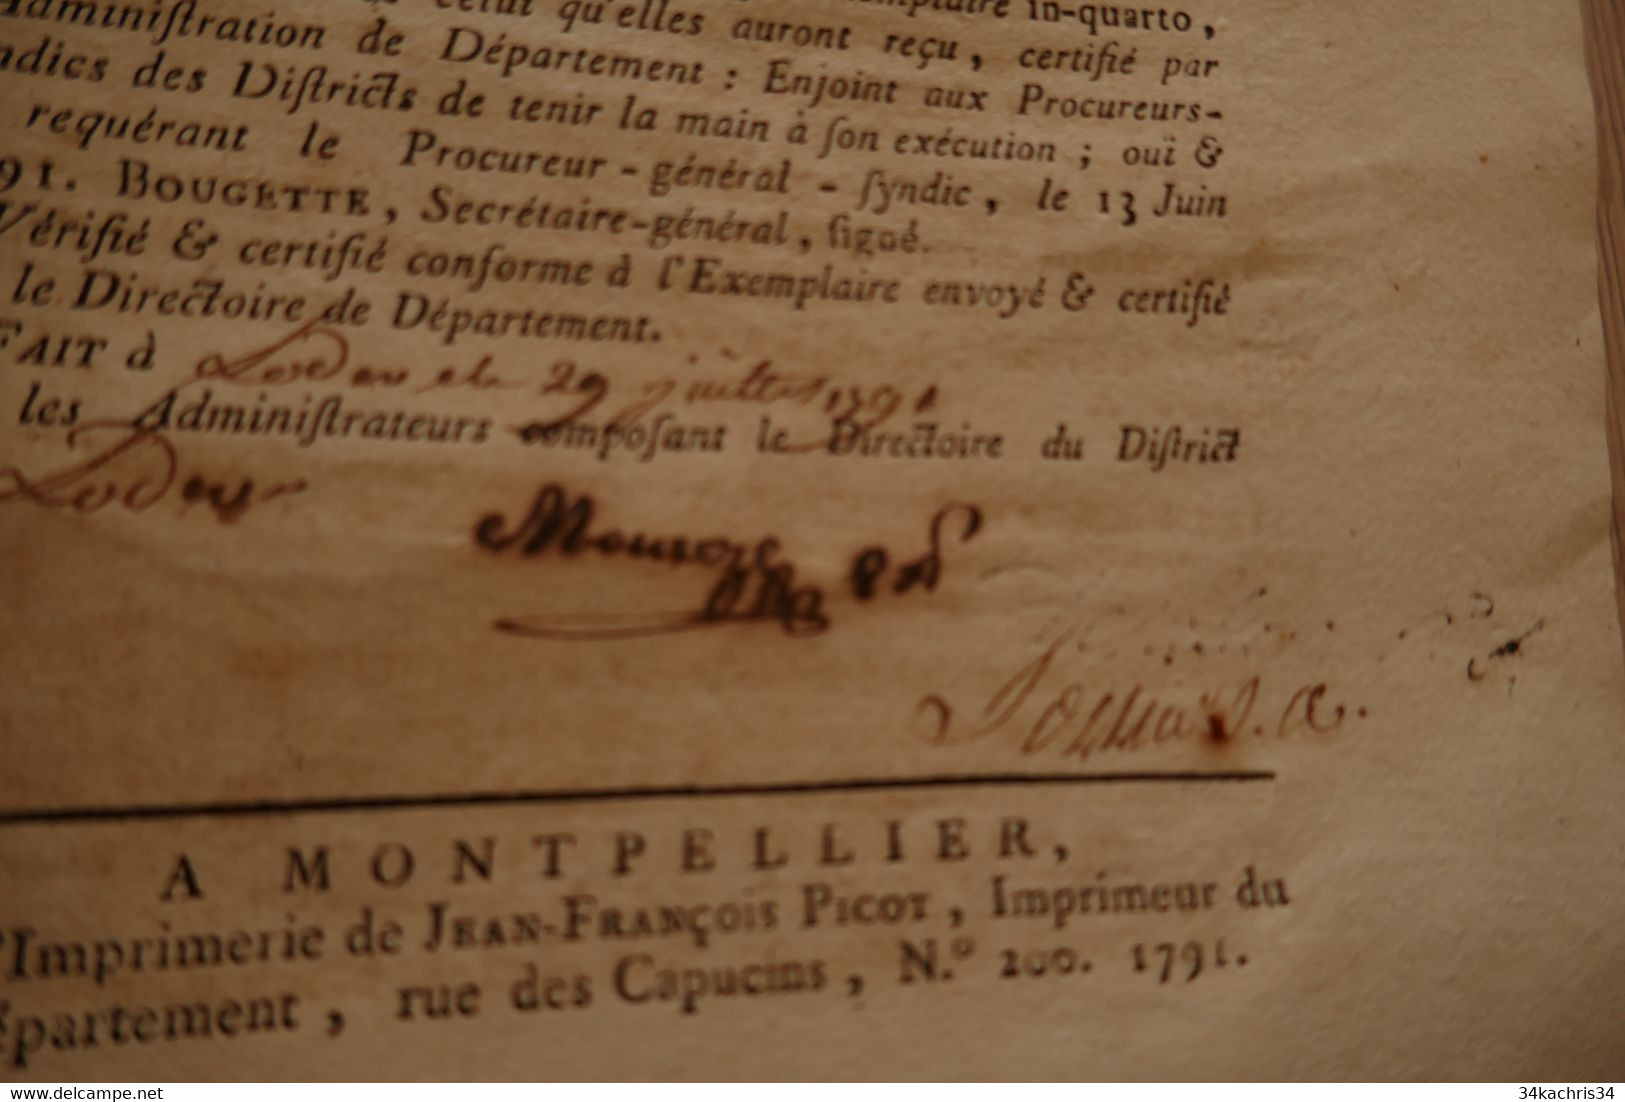 celui qu'elles auront reçu, certifié par
Exemplaire in-quarto,
Adminiſtration de Département : Enjoint aux Procureurs-
ndics des Diſtricts de tenir la main à ſon exécution ; ouï &
requérant le Procureur-général-ſyndic, le 13 Juin
91. BOUGETTE, Secrétaire-général, ſigné.
Vérifié & certifié conforme à l'Exemplaire envoyé & certifié
le Directoire de Département.
FAIT à Lodeve le 29 juillet 1791
les Adminiſtrateurs compoſant le Directoire du Diſtrict
Lodeve
A MONTPELLIER,
l'Imprimerie de JEAN-FRANÇOIS PICOT, Imprimeur du
épartement, rue des Capucins, N.º 200. 1791.
www.delcampe.net
34kachris34